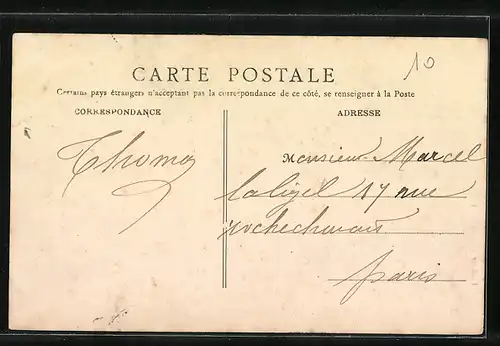 10
CARTE POSTALE
Certains pays étrangers n'acceptant pas la correspondance de ce côté, se renseigner à la Poste
CORRESPONDANCE
ADRESSE
Thoma
Monsieur Marcel
17 rue
rochechouart
paris